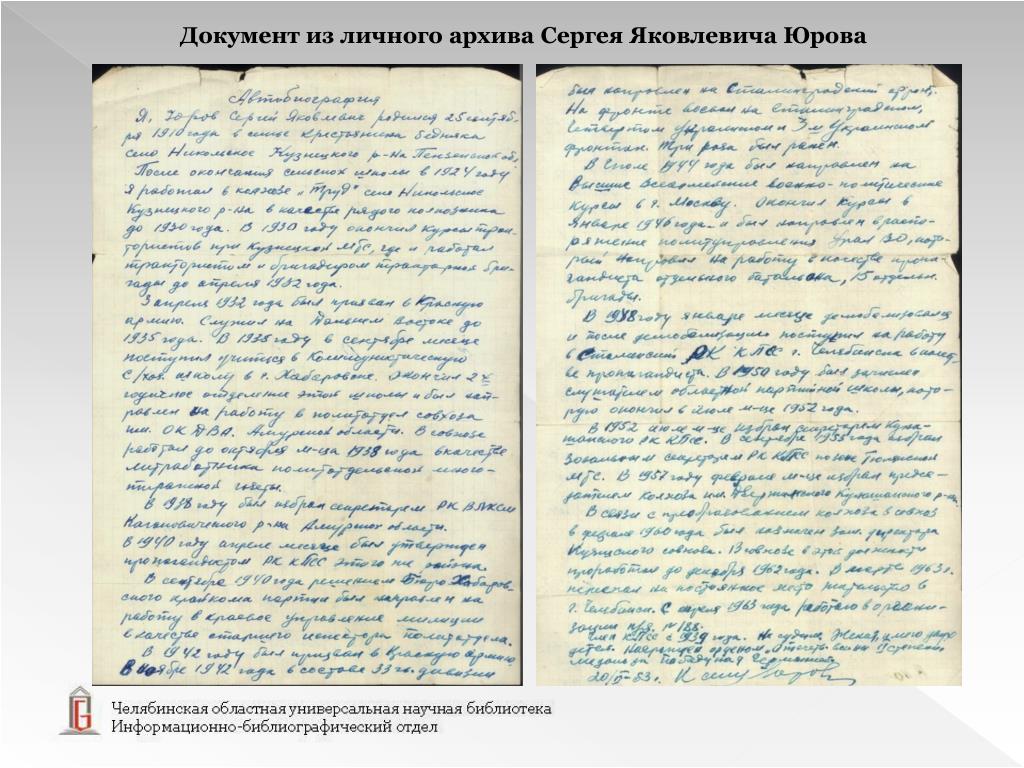 Документ из личного архива Сергея Яковлевича Юрова
Автобиография
Я, Юров Сергей Яковлевич родился 25 сентяб-
ря 1910 года в семье крестьянина бедняка
село Никольское Кузнецкого р-на Пензенской об.
После окончания сельской школы в 1924 году
я работал в колхозе „Труд" село Никольское
Кузнецкого р-на в качестве рядого колхозника
до 1930 года. В 1930 году окончил курсы трак-
тористов при Кузнецкой МТС, где и работал
трактористом и бригадиром тракторной бри-
гады до апреля 1932 года.
3 апреля 1932 года был призван в Красную
армию. Служил на Дальнем Востоке до
1935 года. В 1935 году в сентябре месяце
поступил учиться в Коммунистическую
с/хоз. школу в г. Хабаровске. Окончил 2х
годичное отделение этой школы и был нап-
равлен на работу в политотдел совхоза
им. ОКДВА. Амурской области. В совхозе
работал до октября м-ца 1938 года в качестве
литработника политотдельской много-
тиражной газеты.
В 1938 году был избран секретарем РК ВЛКСМ
Кагановического р-на Амурской области.
В 1940 году апреле месяце был утвержден
пропагандистом РК КПСС этого же района.
В сентябре 1940 года решением Бюро Хабаров-
ского крайкома партии был направлен на
работу в краевое управление милиции
в качестве старшего инспектора политотдела.
В 1942 году был призван в Красную армию.
В ноябре 1942 года в составе 33 гв. дивизии
был направлен на Сталинградский фронт.
На фронте воевал на Сталинградском,
Четвертом украинском и 3м Украинском
фронтах. Три раза был ранен.
В 1944 года был направлен на
Высшие Всеармейские военно-политические
курсы в г. Москву. Окончил курсы в
январе 1946 года и был направлен в распо-
ряжение политуправления УралВО, кото-
рый направил на работу в качестве пропа-
гандиста отдельного батальона, 15 отдельн.
бригады.
В 1948 году январе месяце демобилизовался
и после демобилизации поступил на работу
в Сталинский РК КПСС г. Челябинска в качест-
ве пропагандиста. В 1950 году был зачислен
слушателем областной партийной школы, кото-
рую окончил в июле м-це 1952 года.
В 1952 июле м-це избран секретарем Куна-
шакского РК КПСС. В сентябре 1955 года избран
Зональным секретарем РК КПСС по зоне
МТС. В 1957 году феврале м-це избран предсе-
дателем колхоза им. Дзержинского Кунашакского р-на.
В связи с преобразованием колхоза в совхоз
в феврале 1960 года был назначен зам. директора
совхоза. В совхозе в этой должности
проработал до декабря 1962 года. В марте 1963 г.
переехал на постоянное место жительство в
г. Челябинск. С апреля 1963 года работаю в органи-
зации п/я. № 188.
Член КПСС с 1939 года. Не судим, Женат,
Награжден орденом „Отечеств. войны II степени
медаль за победу над Германией
83 г. К сему Юров
Челябинская областная универсальная научная библиотека
Информационно-библиографический отдел